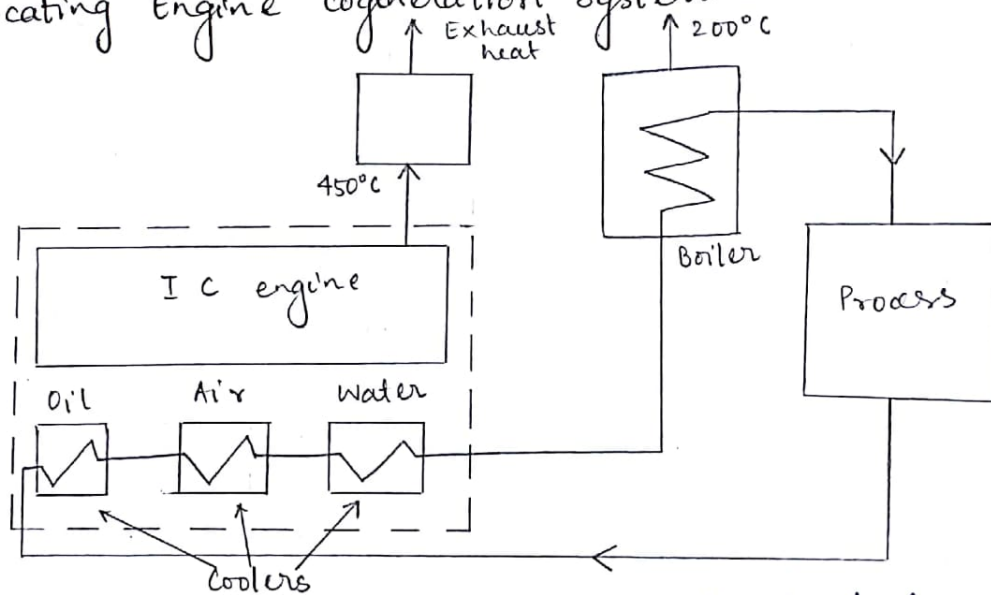 cating Engine cogeneration system
Exhaust
heat
200°C
450°C
Boiler
I C engine
Process
Oil
Air
Water
Coolers